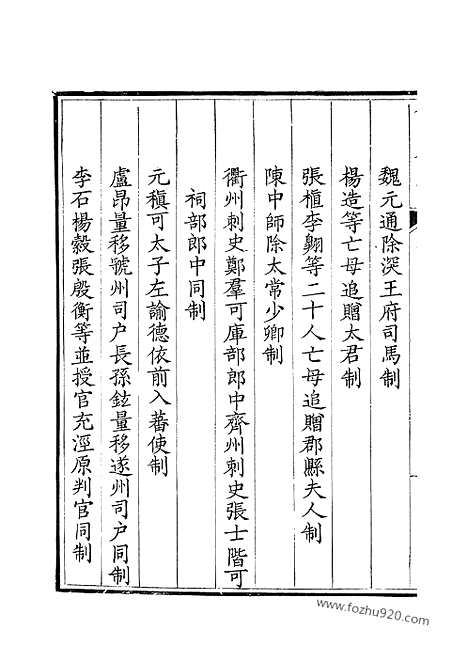 魏元通除深王府司馬制
楊造等亡母追贈太君制
張楨李翺等二十人亡母追贈郡縣夫人制
陳中師除太常少卿制
衢州刺史鄭羣可庫部郎中齊州刺史張士階可
祠部郎中同制
元稹可太子左諭德依前入蕃使制
盧昂量移虢州司户長孫鉉量移遂州司户同制
李石楊縠張殷衡等並授官充涇原判官同制
www.fozhu920.com